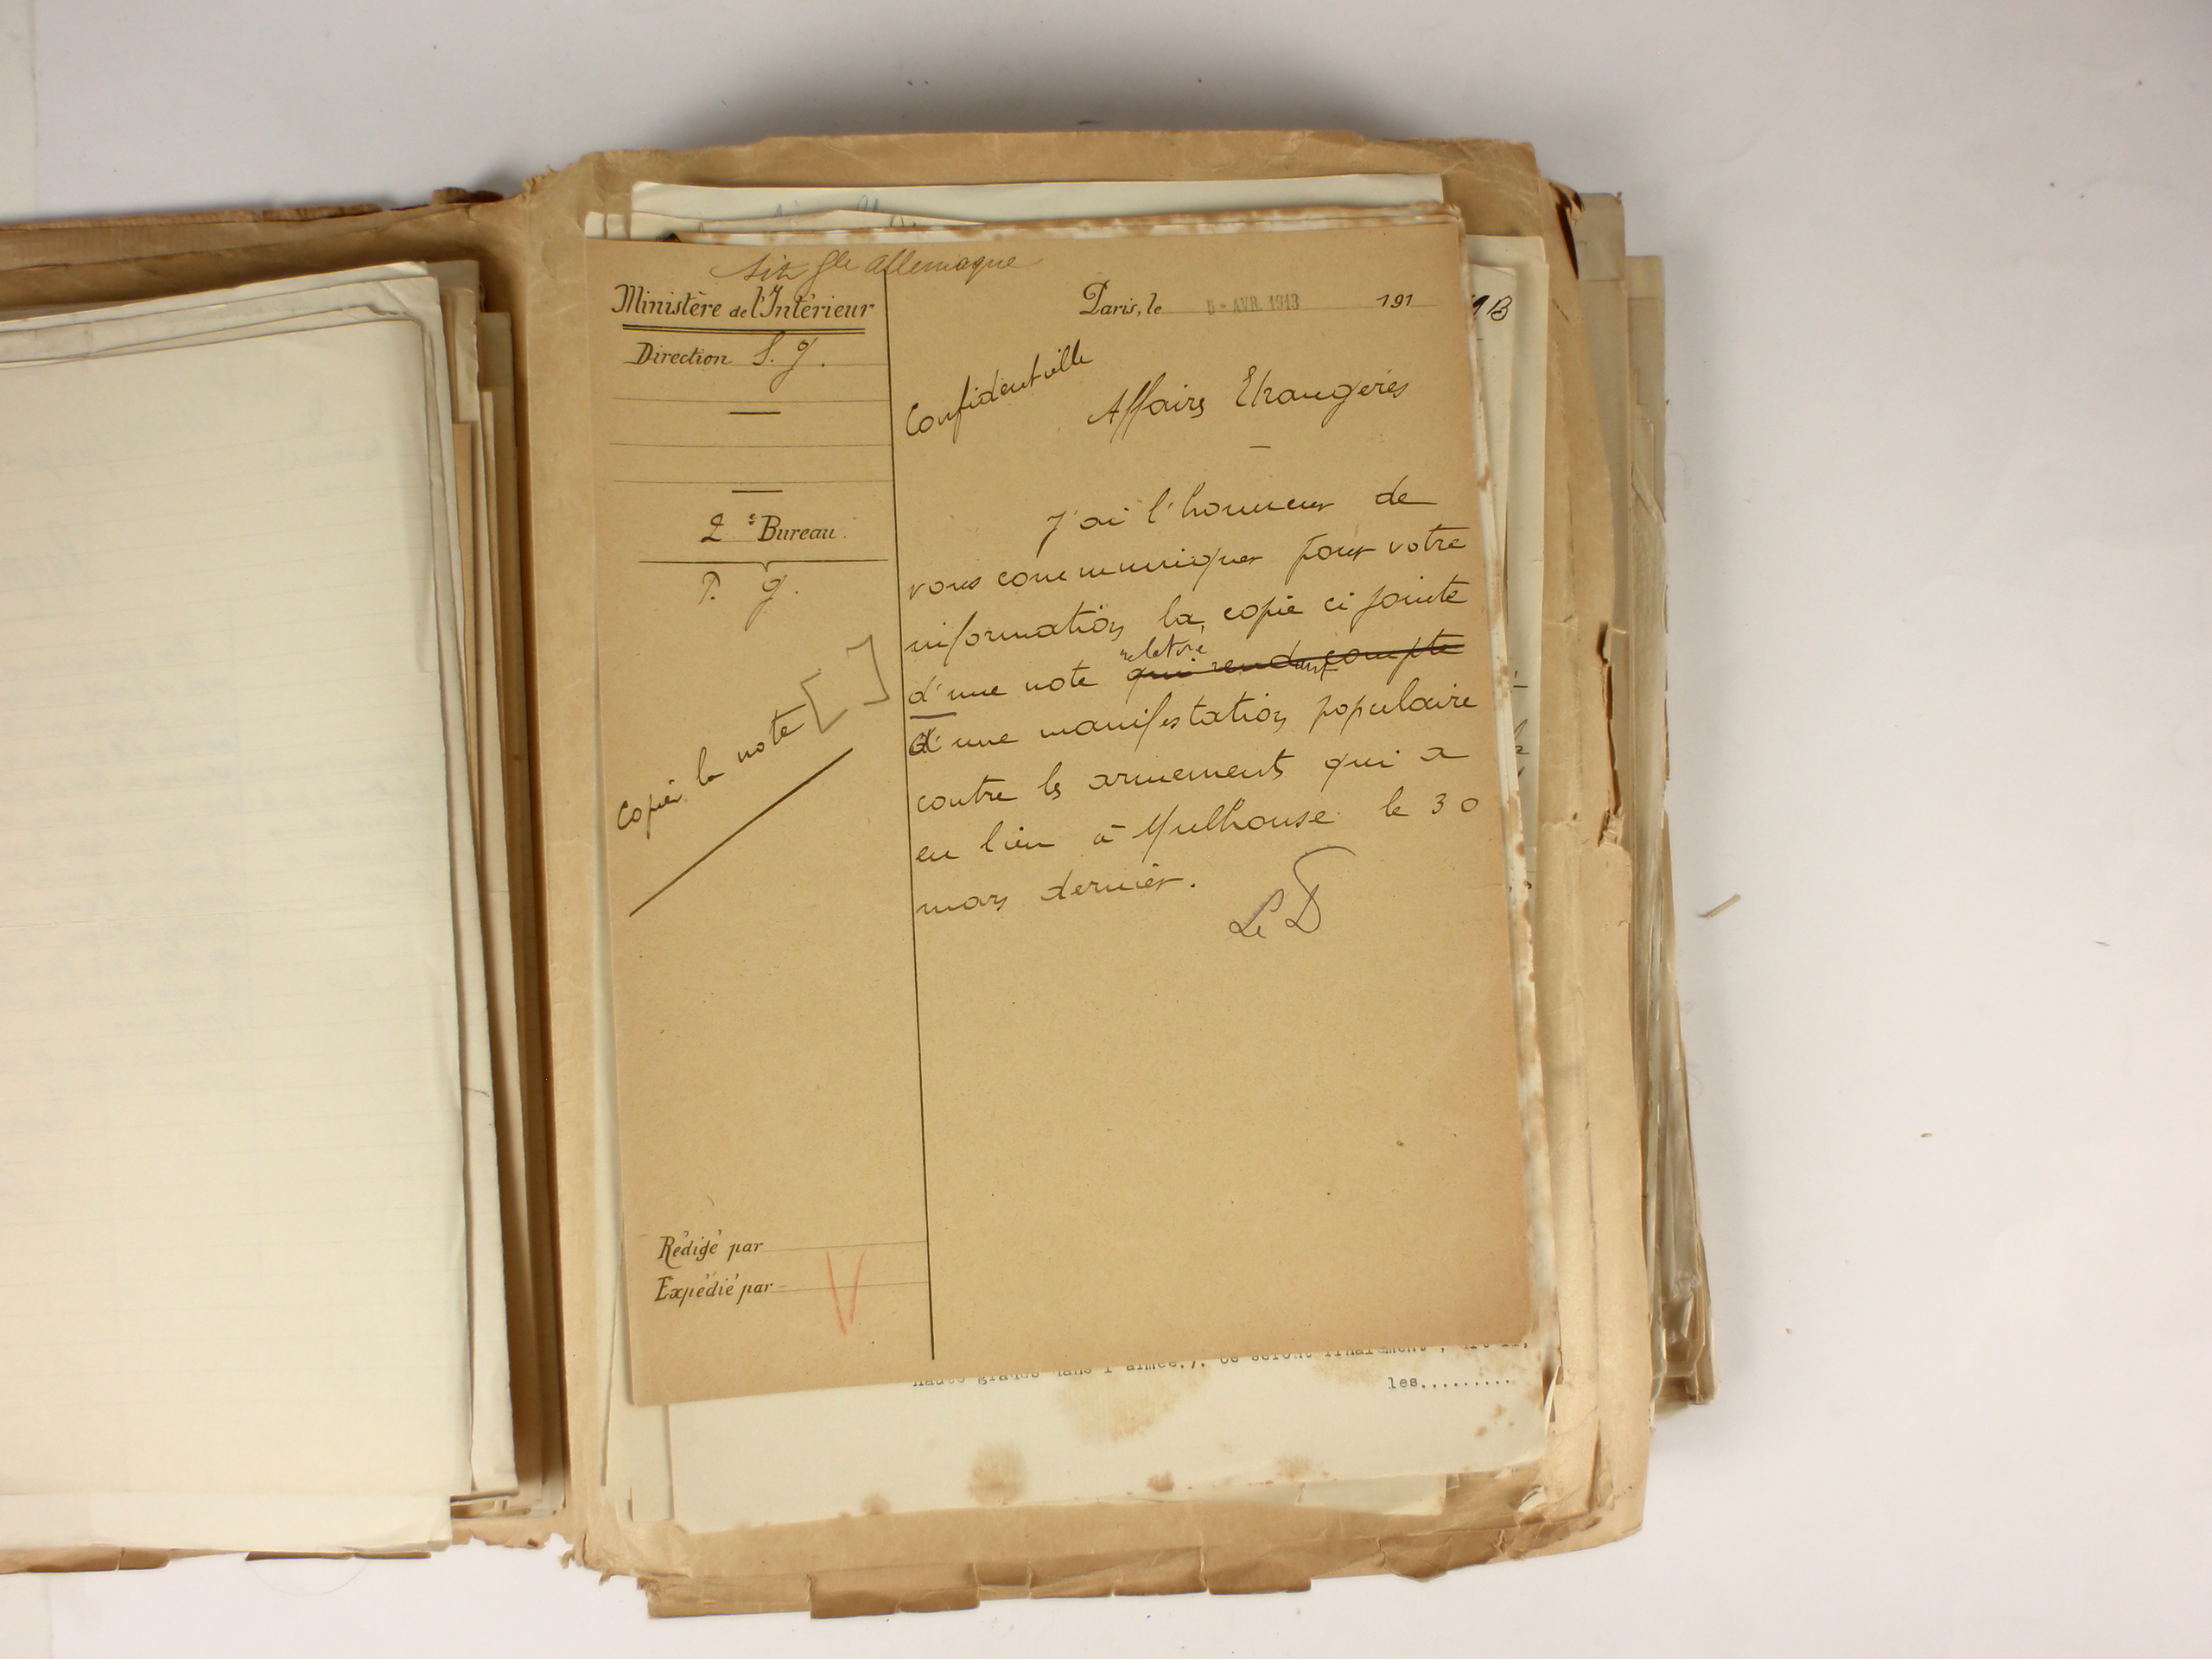 sit gle Allemagne
Ministère de l'Intérieur
Direction S. g.
2e Bureau.
P. g.
Copier la note [ ]
Rédigé par
Expédié par
Paris, le 5 - AVR. 1913 191
Confidentielle
Affaires Etrangères
J'ai l'honneur de
vous communiquer pour votre
information la copie ci jointe
d'une note relative qui rendant compte
d'une manifestation populaire
contre les armements qui a
eu lieu à Mulhouse le 30
mars dernier.
Le D
les.........